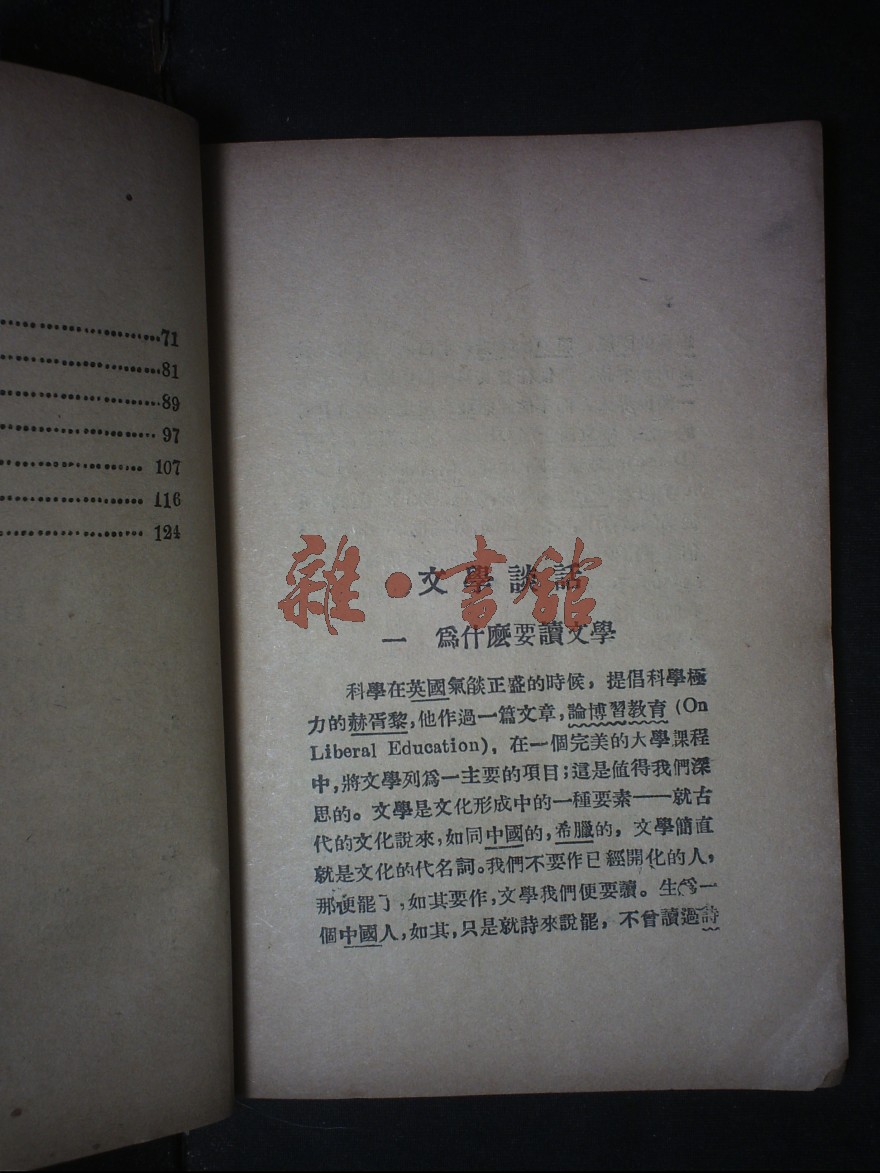 71
81
89
97
107
116
124
雜·書館
文學談話
一 爲什麽要讀文學
科學在英國氣燄正盛的時候，提倡科學極
力的赫胥黎，他作過一篇文章，論博習教育 (On
Liberal Education)，在一個完美的大學課程
中，將文學列爲一主要的項目；這是值得我們深
思的。文學是文化形成中的一種要素——就古
代的文化說來，如同中國的，希臘的，文學簡直
就是文化的代名詞。我們不要作已經開化的人，
那便罷了，如其要作，文學我們便要讀。生爲一
個中國人，如其，只是就詩來說罷，不曾讀過詩